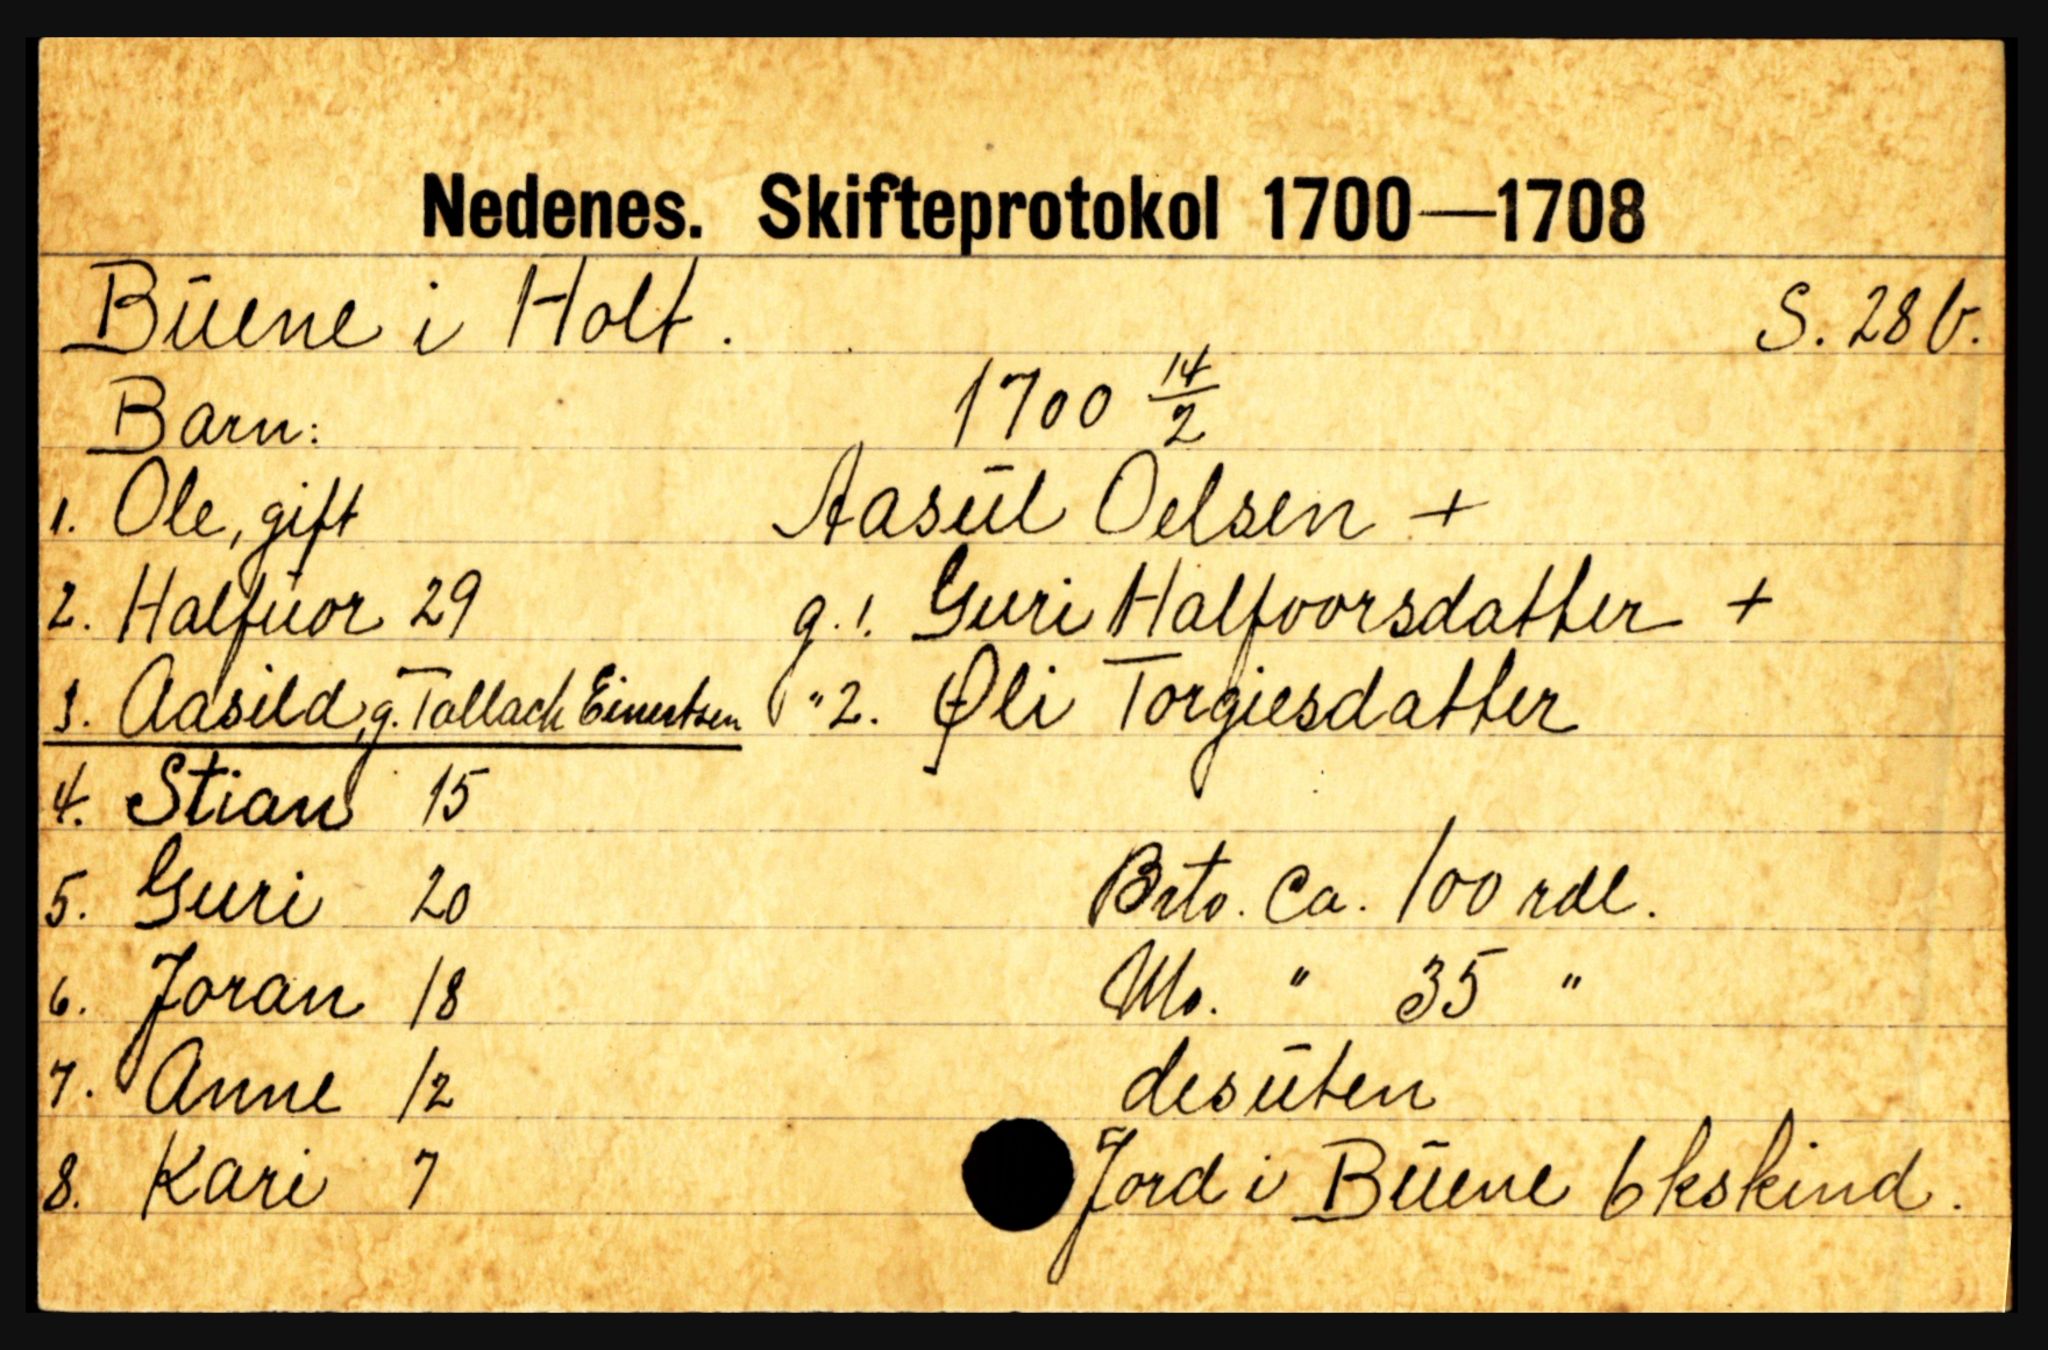 Nedenes. Skifteprotokol 1700—1708
Büene i Holt. S. 28 b.
Barn: 1700 14/2
1. Ole, gift Aasül Oelsen +
2. Halfüor 29 g. 1. Guri Halfvorsdatter +
3. Aasild, g. Tallach Einertsen " 2. Øli Torgiesdatter
4. Stian 15
5. Guri 20 Brto. Ca. 100 rdl.
6. Joran 18 Mo. " 35 "
7. Anne 12 desüten
8. Kari 7 Jord i Büene 6 kskind.